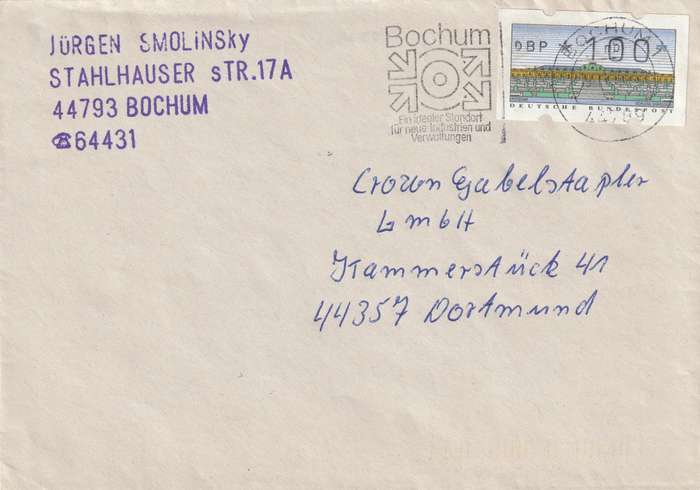 JÜRGEN SMOLiNSky
STAHLHAUSER sTR.17A
44793 BOCHUM
☎64431
Bochum
Ein idealer Standort
für neue Industrien und
Verwaltungen
DBP *100*
DEUTSCHE BUNDESPOST
BOCHUM
44789
Crown Gabelstapler
GmbH
Kammerstück 41
44357 Dortmund